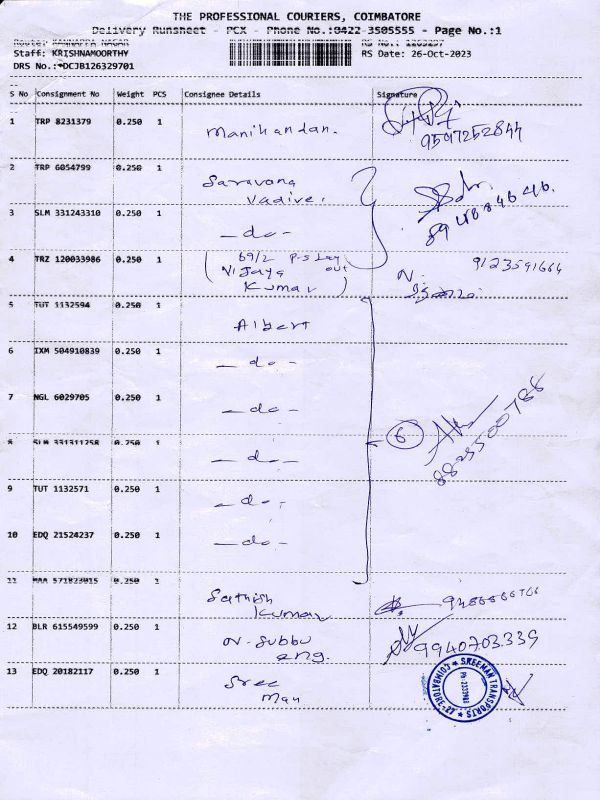 THE PROFESSIONAL COURIERS, COIMBATORE
Delivery Runsheet - PCX - Phone No.:0422-3505555 - Page No.:1
Route: KANNAPPA NAGAR RS No.: 1263297
Staff: KRISHNAMOORTHY RS Date: 26-Oct-2023
DRS No.:*DCJB126329701
S No Consignment No Weight PCS Consignee Details Signature
1 TRP 8231379 0.250 1 Manikandan.
9597252844
2 TRP 6054799 0.250 1 Saravana
Vadivel
3 SLM 331243310 0.250 1 -do-
4 TRZ 120033986 0.250 1 (69/2 P.S Lay out 9123591664
Vijaya
Kumar)
5 TUT 1132594 0.250 1 Albert
6 IXM 504910839 0.250 1 -do-
7 NGL 6029705 0.250 1 -do-
8 SLM 331311258 0.250 1 -do- 6 8825500788
9 TUT 1132571 0.250 1 -do-
10 EDQ 21524237 0.250 1 -do-
11 MAA 571823015 0.250 1 Sathish
Kumar
12 BLR 615549599 0.250 1 N. Subbu 9940703339
eng.
13 EDQ 20182117 0.250 1 Sree
Man
SREEMAN TRANSPORTS
COIMBATORE-27